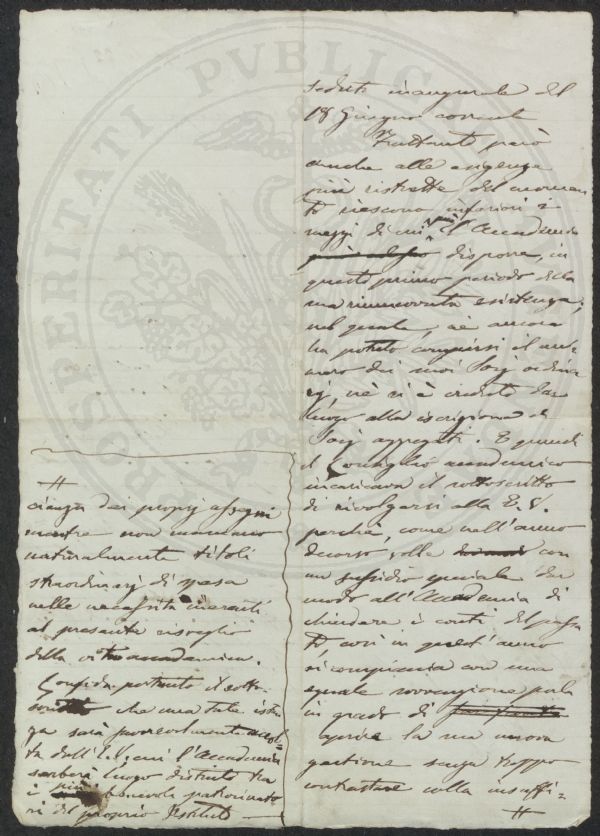 seduta inaugurale del
18 Giugno corrente
Frattanto però
anche alle esigenze
più ristrette del momen
to riescono inferiori i
mezzi di cui può l'Accademia
disporre, in
questo primo periodo della
sua rinnovata esistenza,
nel quale, nè ancora
ha potuto compiersi il nu-
mero dei suoi Socj ordina
rj, nè si è creduto dar
luogo alla iscrizione di
Socj aggregati. E quindi
il Consiglio accademico
incaricava il sottoscritto
di rivolgersi alla E. V.
perchè, come nell'anno
decorso volle con
un sussidio speciale dar
modo all'Accademia di
chiudere i conti del passa
to, così in quest'anno
si compiaccia con una
eguale sovvenzione porla
in grado di
aprire la sua nuova
gestione senza troppo
contrastare colla insuffi=
#
#
cienza dei proprj assegni
mentre non mancano
naturalmente titoli
straordinarj di spesa
nelle necessità inerenti
al presente risveglio
della vita accademica.
Confida pertanto il sotto-
scritto che una tale istan
za sarà favorevolmente accol-
ta dall'E.V., cui l'Accademia
serberà luogo distinto tra
i più benevoli patrocinato
ri del proprio Istituto
PROSPERITATI PVBLICAE